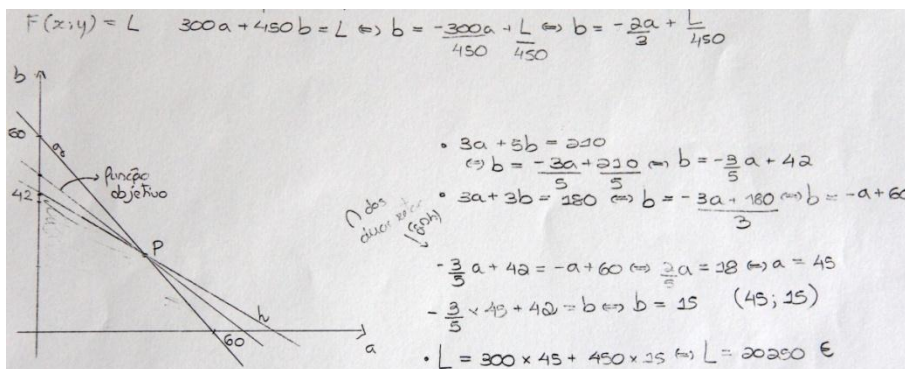 F(x;y) = L 300a + 450b = L ⇔ b = -300a/450 + L/450 ⇔ b = -2a/3 + L/450
b
60
função
objetivo
42
P
h
60
a
• 3a + 5b = 210
⇔ b = -3a/5 + 210/5 ⇔ b = -3/5 a + 42
• 3a + 3b = 180 ⇔ b = -3a + 180/3 ⇔ b = -a + 60
∩ dos
duas
-3/5 a + 42 = -a + 60 ⇔ 2/5 a = 18 ⇔ a = 45
-3/5 × 45 + 42 = b ⇔ b = 15 (45; 15)
• L = 300 × 45 + 450 × 15 ⇔ L = 20250 €